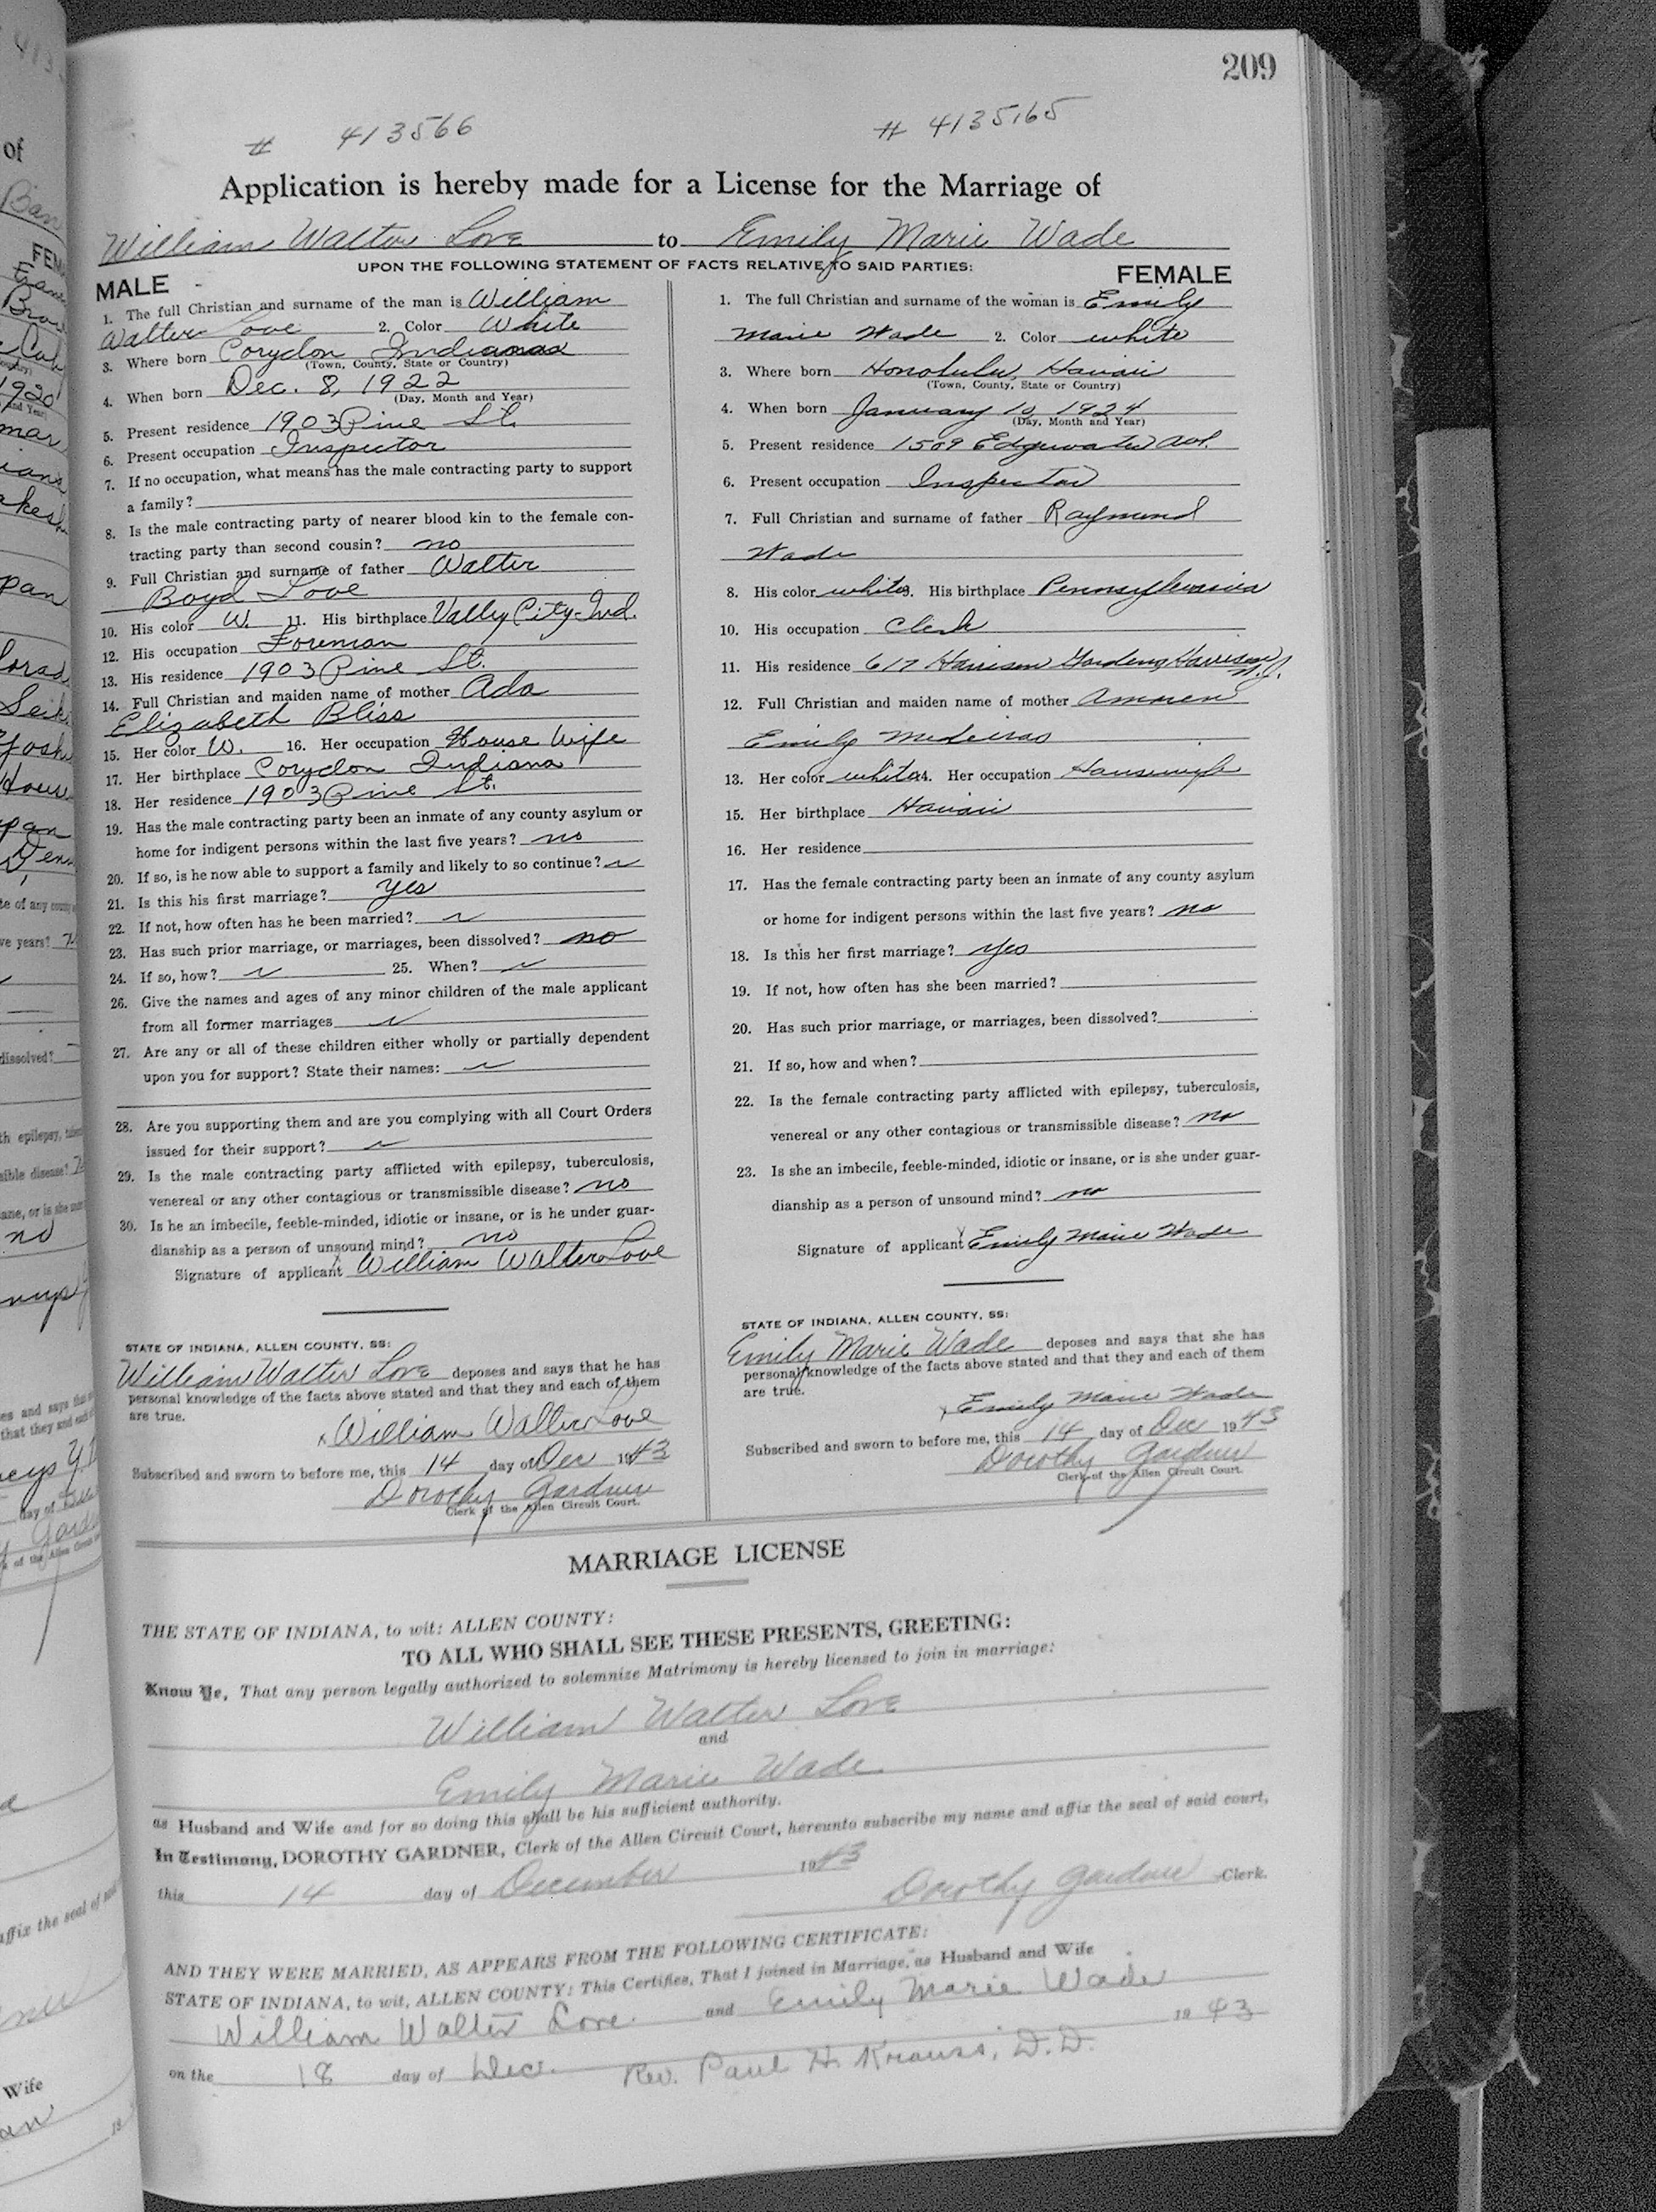 209
# 413566 # 413565
Application is hereby made for a License for the Marriage of
William Walter Love to Emily Marie Wade
UPON THE FOLLOWING STATEMENT OF FACTS RELATIVE TO SAID PARTIES:
MALE
1. The full Christian and surname of the man is William
Walter Love 2. Color White
3. Where born Corydon Indiana
(Town, County, State or Country)
4. When born Dec. 8, 1922
(Day, Month and Year)
5. Present residence 1903 Pine St.
6. Present occupation Inspector
7. If no occupation, what means has the male contracting party to support
a family?
8. Is the male contracting party of nearer blood kin to the female con-
tracting party than second cousin? no
9. Full Christian and surname of father Walter
Boyd Love
10. His color W. 11. His birthplace Vally City Ind.
12. His occupation Foreman
13. His residence 1903 Pine St.
14. Full Christian and maiden name of mother Ada
Elizabeth Bliss
15. Her color W. 16. Her occupation House Wife
17. Her birthplace Corydon Indiana
18. Her residence 1903 Pine St.
19. Has the male contracting party been an inmate of any county asylum or
home for indigent persons within the last five years? no
20. If so, is he now able to support a family and likely to so continue?
21. Is this his first marriage? yes
22. If not, how often has he been married?
23. Has such prior marriage, or marriages, been dissolved? no
24. If so, how? 25. When?
26. Give the names and ages of any minor children of the male applicant
from all former marriages
27. Are any or all of these children either wholly or partially dependent
upon you for support? State their names:
28. Are you supporting them and are you complying with all Court Orders
issued for their support?
29. Is the male contracting party afflicted with epilepsy, tuberculosis,
venereal or any other contagious or transmissible disease? no
30. Is he an imbecile, feeble-minded, idiotic or insane, or is he under guar-
dianship as a person of unsound mind? no
Signature of applicant William Walter Love
STATE OF INDIANA, ALLEN COUNTY, SS:
William Walter Love deposes and says that he has
personal knowledge of the facts above stated and that they and each of them
are true.
x William Walter Love
Subscribed and sworn to before me, this 14 day of Dec 1943
Dorothy Gardner
Clerk of the Allen Circuit Court.
FEMALE
1. The full Christian and surname of the woman is Emily
Marie Wade 2. Color white
3. Where born Honolulu, Hawaii
(Town, County, State or Country)
4. When born January 10, 1924
(Day, Month and Year)
5. Present residence 1509 Edgewater Ave.
6. Present occupation Inspector
7. Full Christian and surname of father Raymond
Wade
8. His color white 9. His birthplace Pennsylvania
10. His occupation Clerk
11. His residence 617 Harrison Gardens Harrison N.J.
12. Full Christian and maiden name of mother
Emily Medeiras
13. Her color white 14. Her occupation Housewife
15. Her birthplace Hawaii
16. Her residence
17. Has the female contracting party been an inmate of any county asylum
or home for indigent persons within the last five years? no
18. Is this her first marriage? yes
19. If not, how often has she been married?
20. Has such prior marriage, or marriages, been dissolved?
21. If so, how and when?
22. Is the female contracting party afflicted with epilepsy, tuberculosis,
venereal or any other contagious or transmissible disease? no
23. Is she an imbecile, feeble-minded, idiotic or insane, or is she under guar-
dianship as a person of unsound mind? no
Signature of applicant x Emily Marie Wade
STATE OF INDIANA, ALLEN COUNTY, SS:
Emily Marie Wade deposes and says that she has
personal knowledge of the facts above stated and that they and each of them
are true.
x Emily Marie Wade
Subscribed and sworn to before me, this 14 day of Dec 1943
Dorothy Gardner
Clerk of the Allen Circuit Court.
MARRIAGE LICENSE
THE STATE OF INDIANA, to wit: ALLEN COUNTY:
TO ALL WHO SHALL SEE THESE PRESENTS, GREETING:
Know Ye, That any person legally authorized to solemnize Matrimony is hereby licensed to join in marriage:
William Walter Love
and
Emily Marie Wade
as Husband and Wife and for so doing this shall be his sufficient authority.
In Testimony, DOROTHY GARDNER, Clerk of the Allen Circuit Court, hereunto subscribe my name and affix the seal of said court,
this 14 day of December 1943
Dorothy Gardner Clerk.
AND THEY WERE MARRIED, AS APPEARS FROM THE FOLLOWING CERTIFICATE:
STATE OF INDIANA, to wit, ALLEN COUNTY: This Certifies, That I joined in Marriage, as Husband and Wife
William Walter Love and Emily Marie Wade
on the 18 day of Dec. 1943
Rev. Paul H. Krauss, D.D.